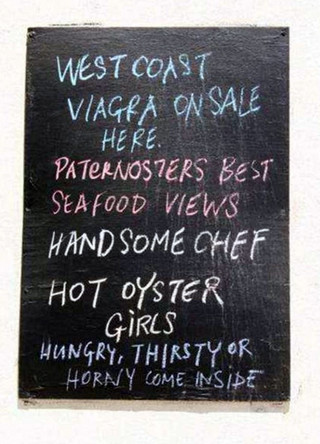 WEST COAST
VIAGRA ON SALE
HERE.
PATERNOSTERS BEST
SEAFOOD VIEWS
HANDSOME CHEF
HOT OYSTER
GIRLS
HUNGRY, THIRSTY OR
HORNY COME INSIDE